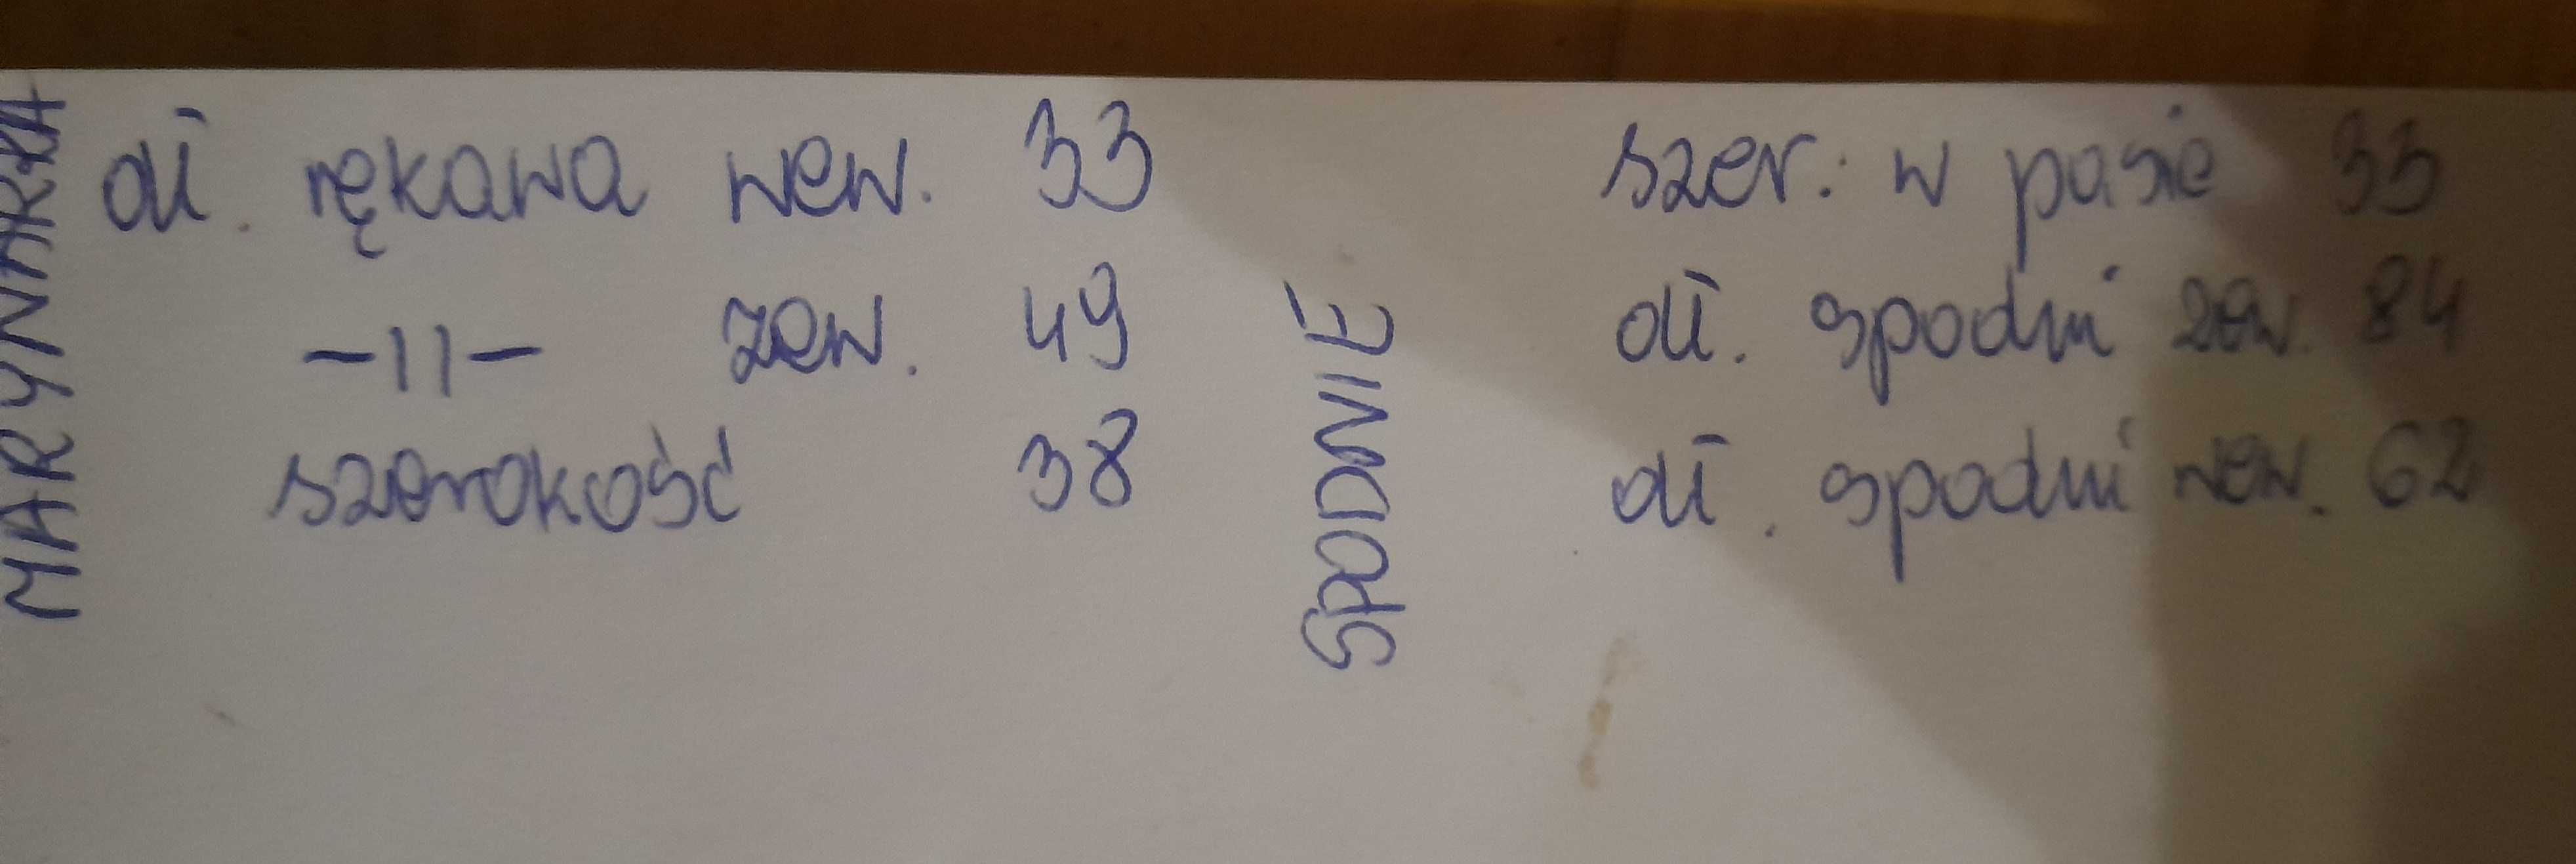 MARYNARKA
dł. rękawa wew. 33
-11- zew. 49
szerokość 38
SPODNIE
szer. w pasie 33
dł. spodni zew. 84
dł. spodni wew. 62